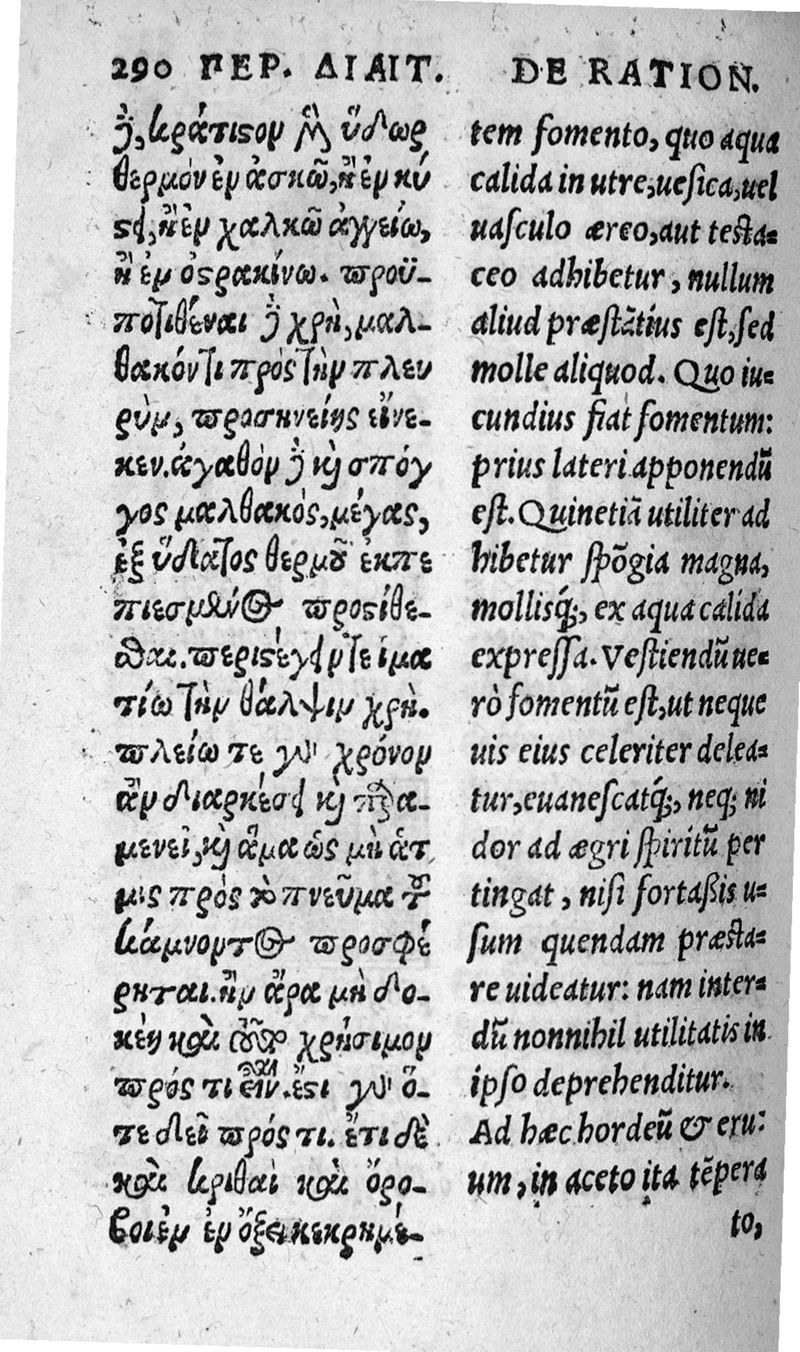 290 ΠΕΡ. ΔΙΑΙΤ. DE RATION.
δὲ, κράτιστον μὴν ὕδωρ
θερμὸν ἐν ἀσκῷ, ἢ ἐν κύ
στει, ἢ ἐν χαλκῷ ἀγγείῳ,
ἢ ἐν ὀστρακίνῳ. προϋ-
ποτιθέναι δὲ χρὴ, μαλ-
θακόν τι πρὸς τὴν πλευ
ρὴν, προσηνείης εἵνε-
κεν. ἀγαθὸν δὲ καὶ σπόγ
γος μαλθακὸς, μέγας,
ἐξ ὕδατος θερμοῦ ἐκπε
πιεσμένος προστίθε-
σθαι. περιστέγειν τε ἱμα
τίῳ τὴν θάλψιν χρὴ.
πλείω τε γὰρ χρόνον
ἂν διαρκέσει καὶ παρα-
μενεῖ, καὶ ἅμα ὡς μὴ ἀτ
μὶς πρὸς τὸ πνεῦμα τοῦ
κάμνοντος προσφέ
ρηται. ἢν ἄρα μὴ δο-
κέῃ καὶ τοῦτο χρήσιμον
πρός τι εἶναι. ἔστι γὰρ ὅ-
τε δεῖ πρός τι. ἔτι δὲ
καὶ κριθαὶ καὶ ὄρο-
βοι ἐν ὄξει κεκρημέ-
tem fomento, quo aqua
calida in utre, uesica, uel
uasculo æreo, aut testa-
ceo adhibetur, nullum
aliud præstãtius est, sed
molle aliquod. Quo iu-
cundius fiat fomentum:
prius lateri apponendũ
est. Quinetiã utiliter ad
hibetur spõgia magna,
mollisq́;, ex aqua calida
expressa. Vestiendũ ue-
rò fomentũ est, ut neque
uis eius celeriter delea-
tur, euanescatq́;, neq; ni
dor ad ægri spiritũ per
tingat, nisi fortaßis u-
sum quendam præsta-
re uideatur: nam inter-
dũ nonnihil utilitatis in
ipso deprehenditur.
Ad hæc hordeũ & eru-
um, in aceto ita tẽpera
to,